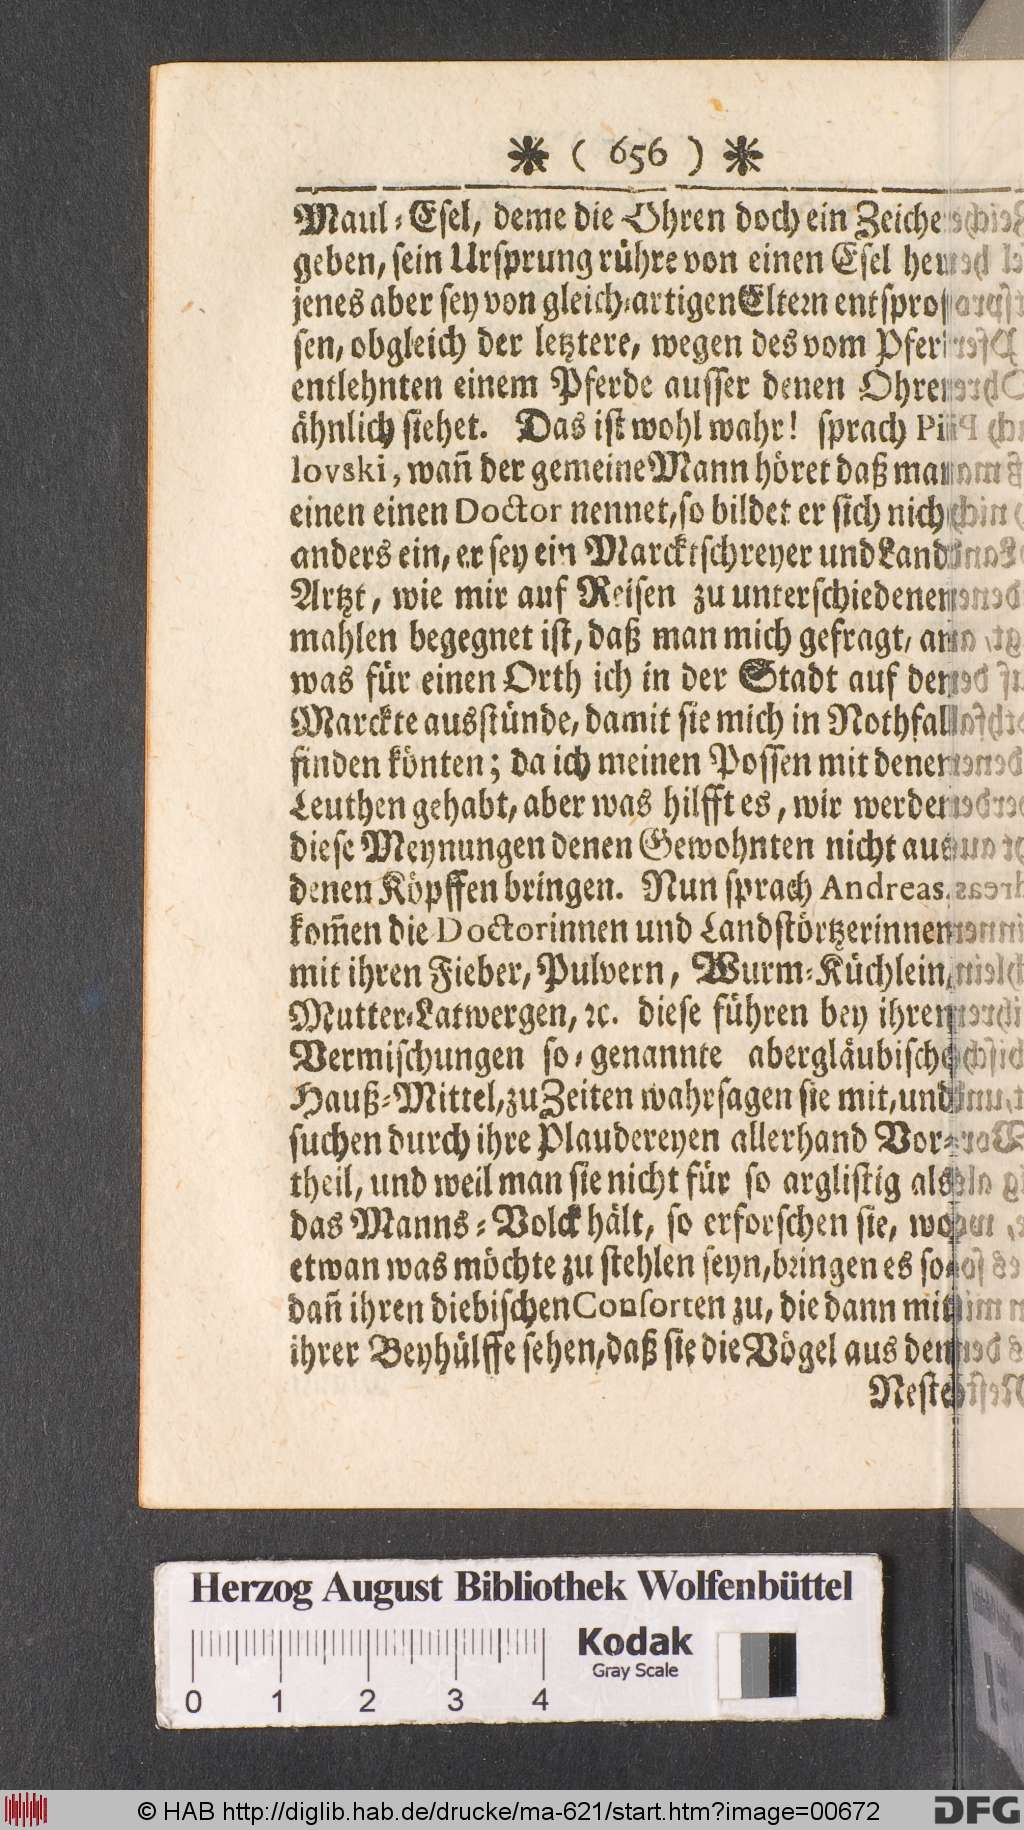 ( 656 )
Maul-Esel, deme die Ohren doch ein Zeiche
geben, sein Ursprung rühre von einen Esel her
jenes aber sey von gleich-artigen Eltern entspros
sen, obgleich der letztere, wegen des vom Pfer
entlehnten einem Pferde ausser denen Ohren
ähnlich siehet. Das ist wohl wahr! sprach Pil
lovski, wañ der gemeine Mann höret daß man
einen einen Doctor nennet, so bildet er sich nich
anders ein, er sey ein Marcktschreyer und Land
Artzt, wie mir auf Reisen zu unterschiedenen
mahlen begegnet ist, daß man mich gefragt, an
was für einen Orth ich in der Stadt auf den
Marckte ausstünde, damit sie mich in Nothfall
finden könten; da ich meinen Possen mit denen
Leuthen gehabt, aber was hilfft es, wir werden
diese Meynungen denen Gewohnten nicht aus
denen Köpffen bringen. Nun sprach Andreas,
kom̃en die Doctorinnen und Landstörtzerinnen
mit ihren Fieber, Pulvern, Wurm-Küchlein,
Mutter-Latwergen, ꝛc. diese führen bey ihren
Vermischungen so-genannte abergläubische
Hauß-Mittel, zu Zeiten wahrsagen sie mit, und
suchen durch ihre Plaudereyen allerhand Vor-
theil, und weil man sie nicht für so arglistig als
das Manns-Volck hält, so erforschen sie, wo
etwan was möchte zu stehlen seyn, bringen es so
dañ ihren diebischen Consorten zu, die dann mit
ihrer Beyhülffe sehen, daß sie die Vögel aus den
Neste
Herzog August Bibliothek Wolfenbüttel
Kodak
Gray Scale
0 1 2 3 4
© HAB http://diglib.hab.de/drucke/ma-621/start.htm?image=00672
DFG